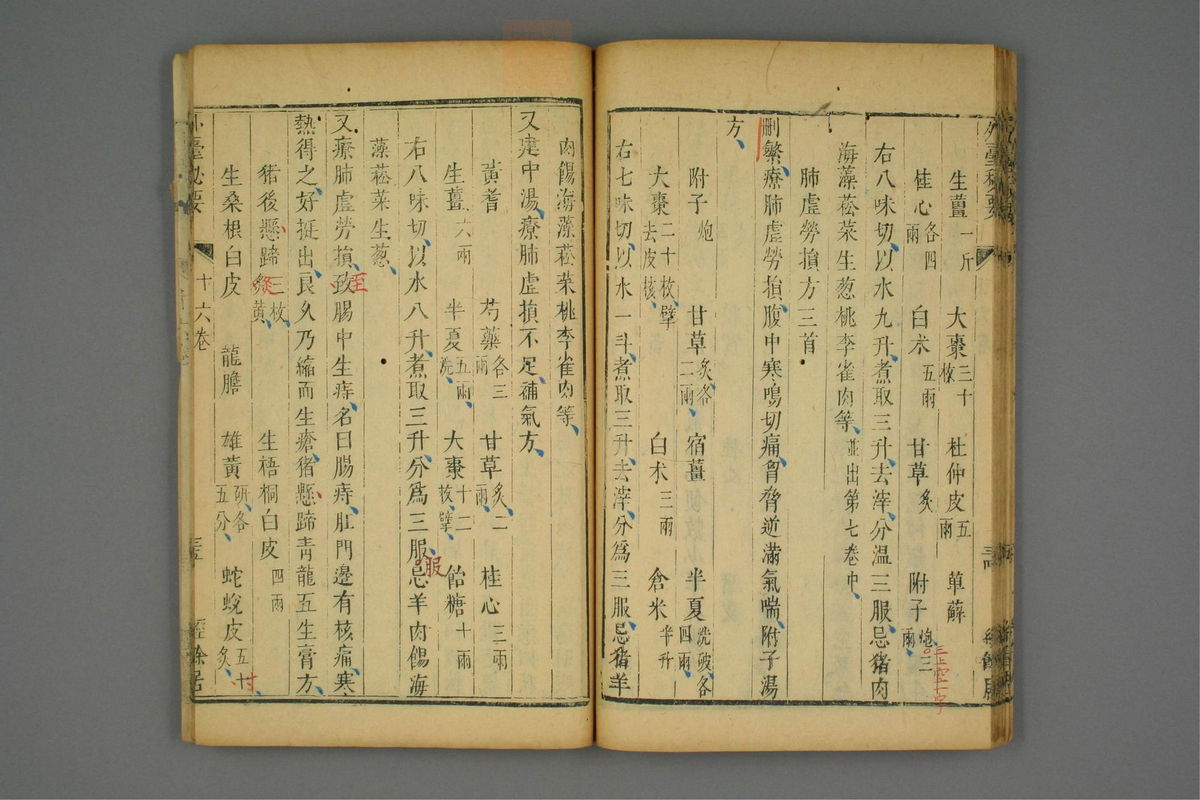 生薑一斤 大棗三十枚 杜仲皮五兩 萆薢
桂心各四兩 白朮五兩 甘草炙 附子炮三兩
右八味切以水九升煮取三升去滓分溫三服忌猪肉
海藻菘菜生葱桃李雀肉等並出第七卷中
肺虛勞損方三首
刪繁療肺虛勞損腹中寒鳴切痛胷脅逆滿氣喘附子湯
方
附子炮 甘草炙各二兩 宿薑 半夏洗破各四兩
大棗二十枚擘去皮核 白朮三兩 倉米半升
右七味切以水一斗煮取三升去滓分爲三服忌猪羊
肉餳海藻菘菜桃李雀肉等
又建中湯療肺虛損不足補氣方
黃耆 芍藥各三兩 甘草炙二兩 桂心三兩
生薑六兩 半夏五兩洗 大棗十二枚擘 飴糖十兩
右八味切以水八升煮取三升分爲三服忌羊肉餳海
藻菘菜生葱
又療肺虛勞損致腸中生痔名曰腸痔肛門邊有核痛寒
熱得之好挺出良久乃縮而生瘡猪懸蹄青龍五生膏方
猪後懸蹄三枚炙黃 生梧桐白皮四兩
生桑根白皮 龍膽 雄黃研各五分 蛇蛻皮五寸炙
外臺秘要 十六卷
至
服
三上空一字